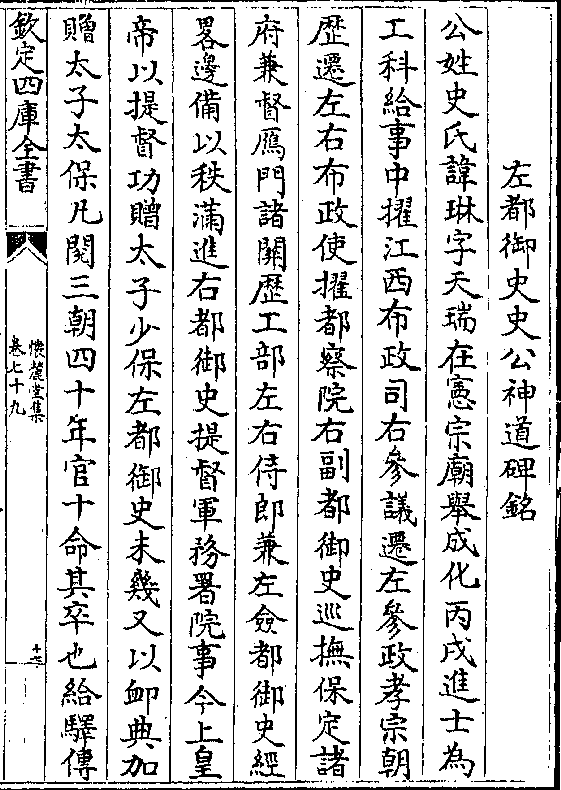 左都御史史公神道碑銘
公姓史氏諱琳字天瑞在憲宗廟舉成化丙戌進士為
工科給事中擢江西布政司右參議遷左參政孝宗朝
歴遷左右布政使擢都察院右副都御史巡撫保定諸
府兼督鴈門諸關歴工部左右侍郎兼左僉都御史經
畧邊備以秩滿進右都御史提督軍務署院事今上皇
帝以提督功贈太子少保左都御史未幾又以䘏典加
贈太子太保凡閱三朝四十年官十命其卒也給驛傳
欽定四庫全書
懷麓堂集
卷七十九